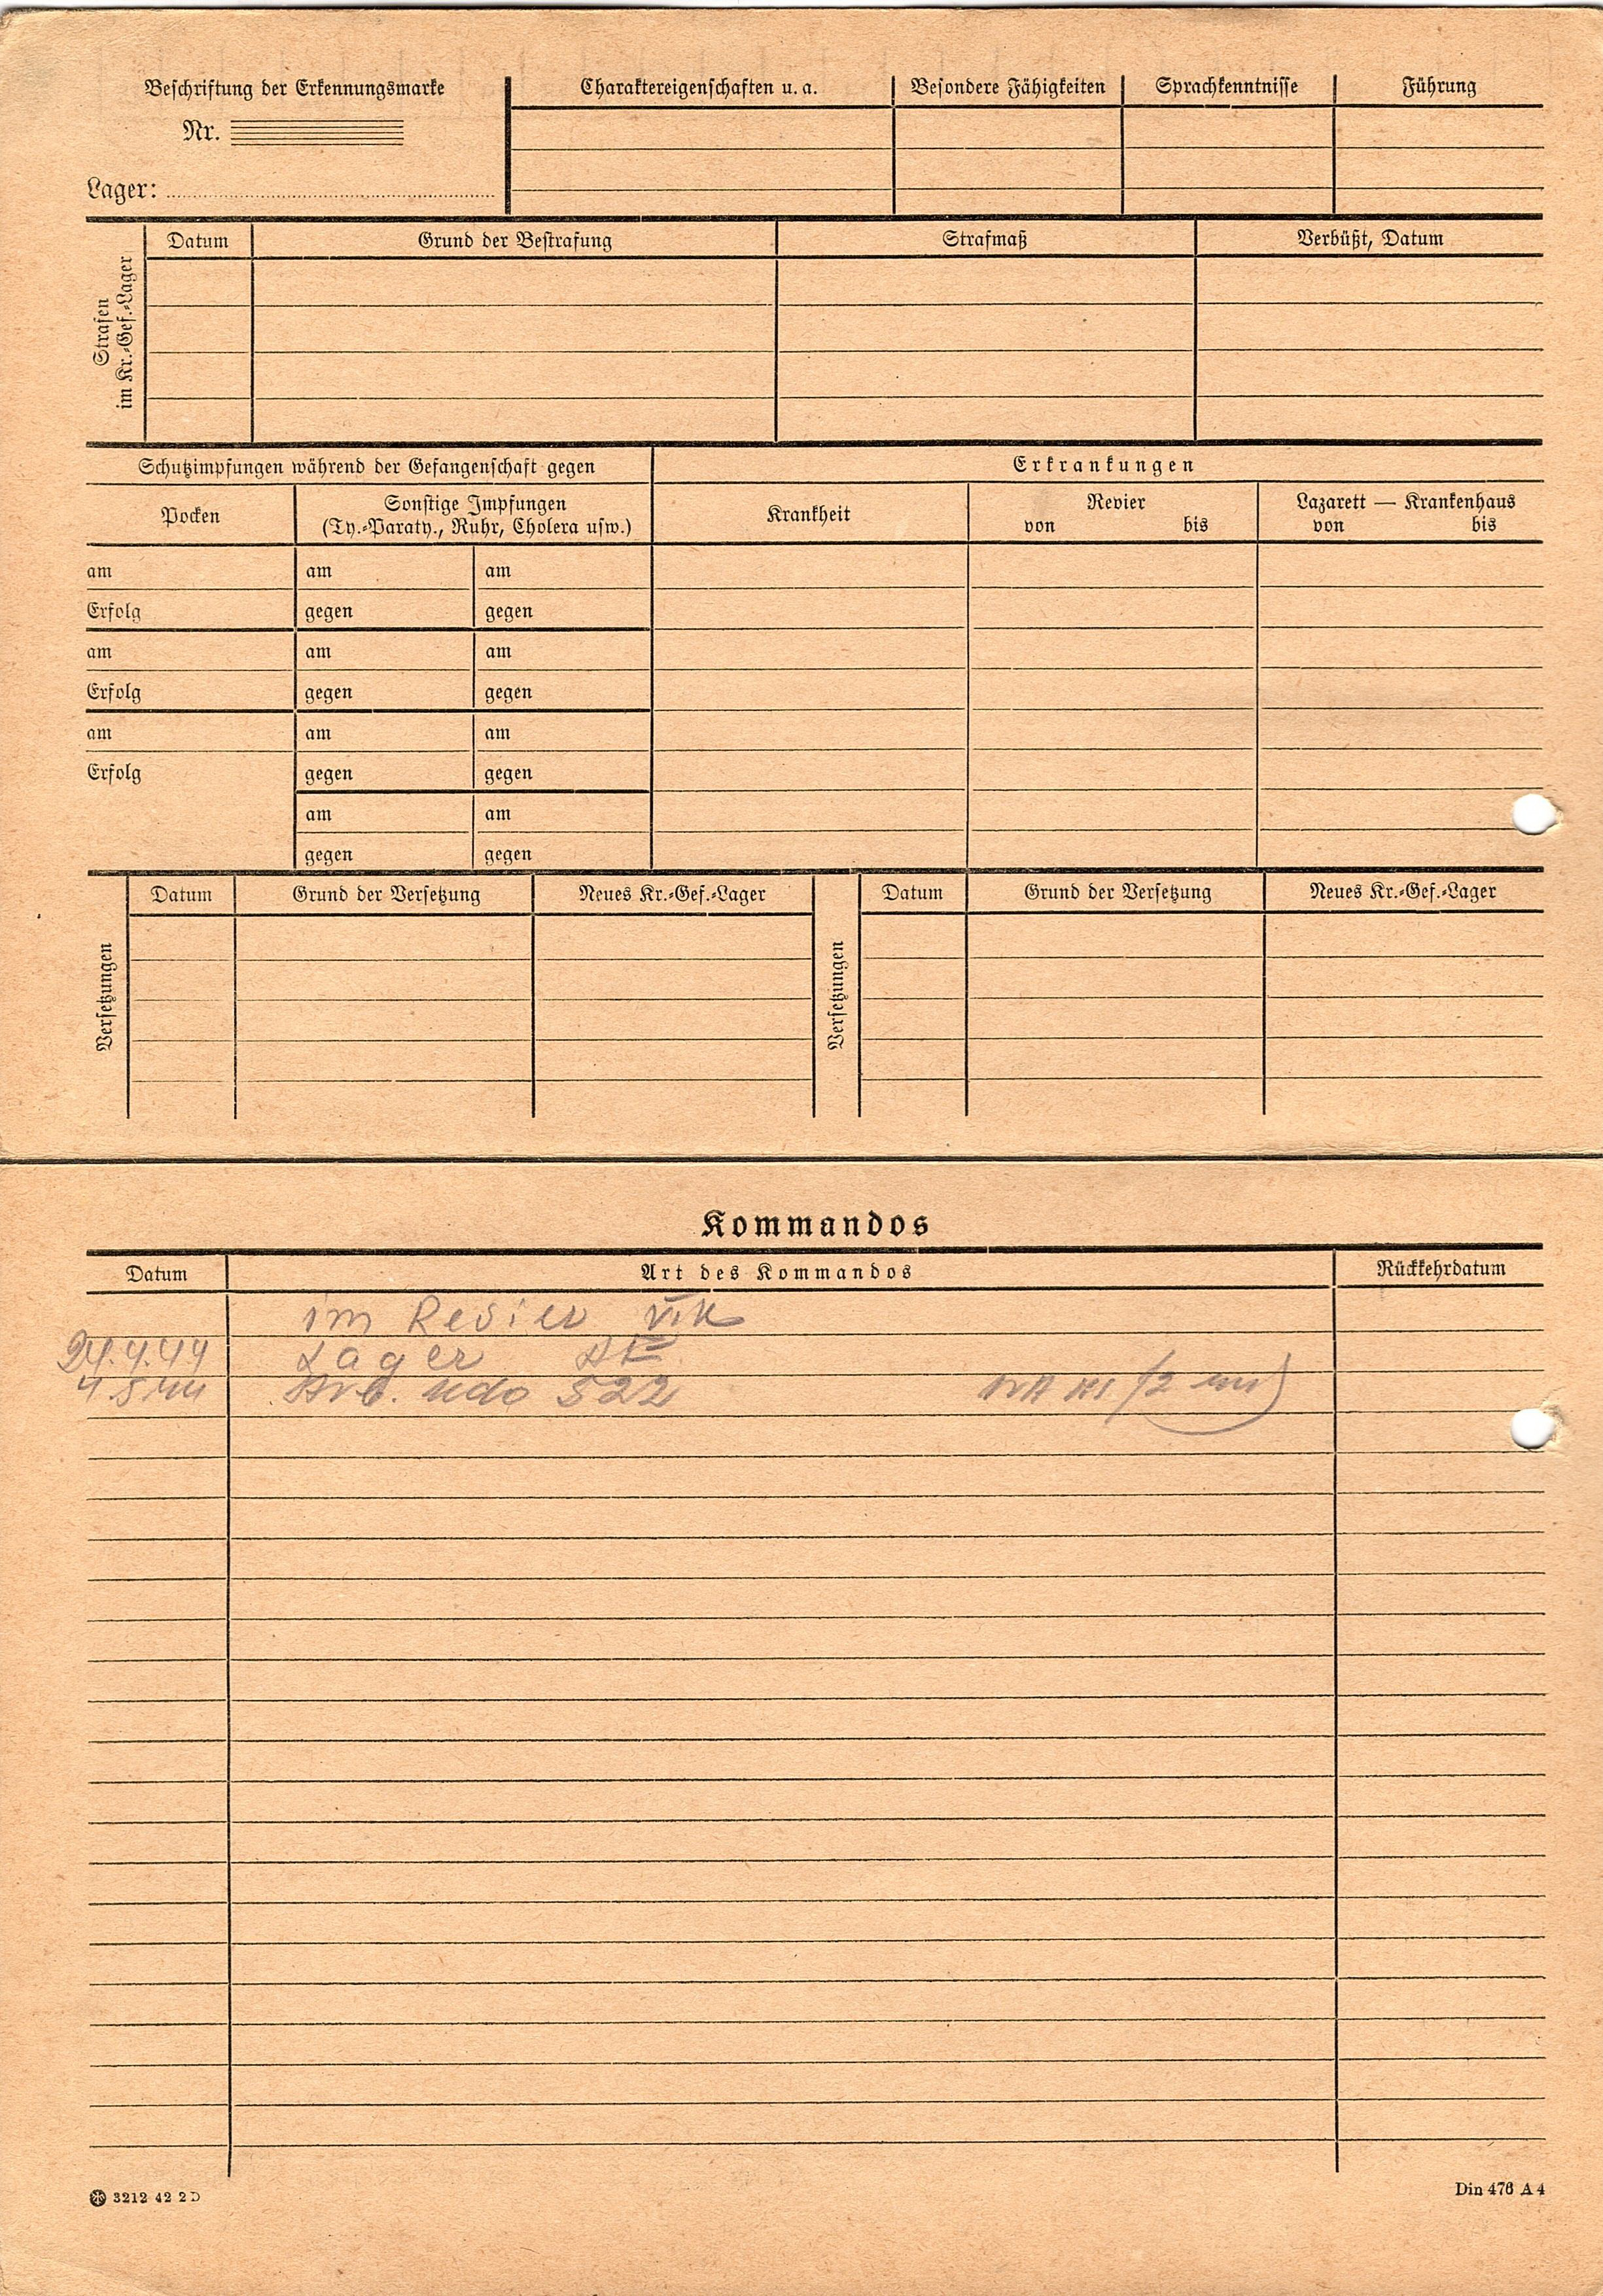 Beschriftung der Erkennungsmarke
Nr.
Lager:
Charaktereigenschaften u. a.
Besondere Fähigkeiten
Sprachkenntnisse
Führung
Strafen
im Kr.-Gef.-Lager
Datum
Grund der Bestrafung
Strafmaß
Verbüßt, Datum
Schutzimpfungen während der Gefangenschaft gegen
Erkrankungen
Pocken
Sonstige Impfungen
(Ty.-Paraty., Ruhr, Cholera usw.)
Krankheit
Revier
von bis
Lazarett — Krankenhaus
von bis
am am am
Erfolg gegen gegen
am am am
Erfolg gegen gegen
am am am
Erfolg gegen gegen
am am
gegen gegen
Versetzungen
Datum
Grund der Versetzung
Neues Kr.-Gef.-Lager
Versetzungen
Datum
Grund der Versetzung
Neues Kr.-Gef.-Lager
Kommandos
Datum
Art des Kommandos
Rückkehrdatum
im Revier
24.4.44 Lager
Arb. Kdo 522
3212 42 2 D
Din 476 A 4